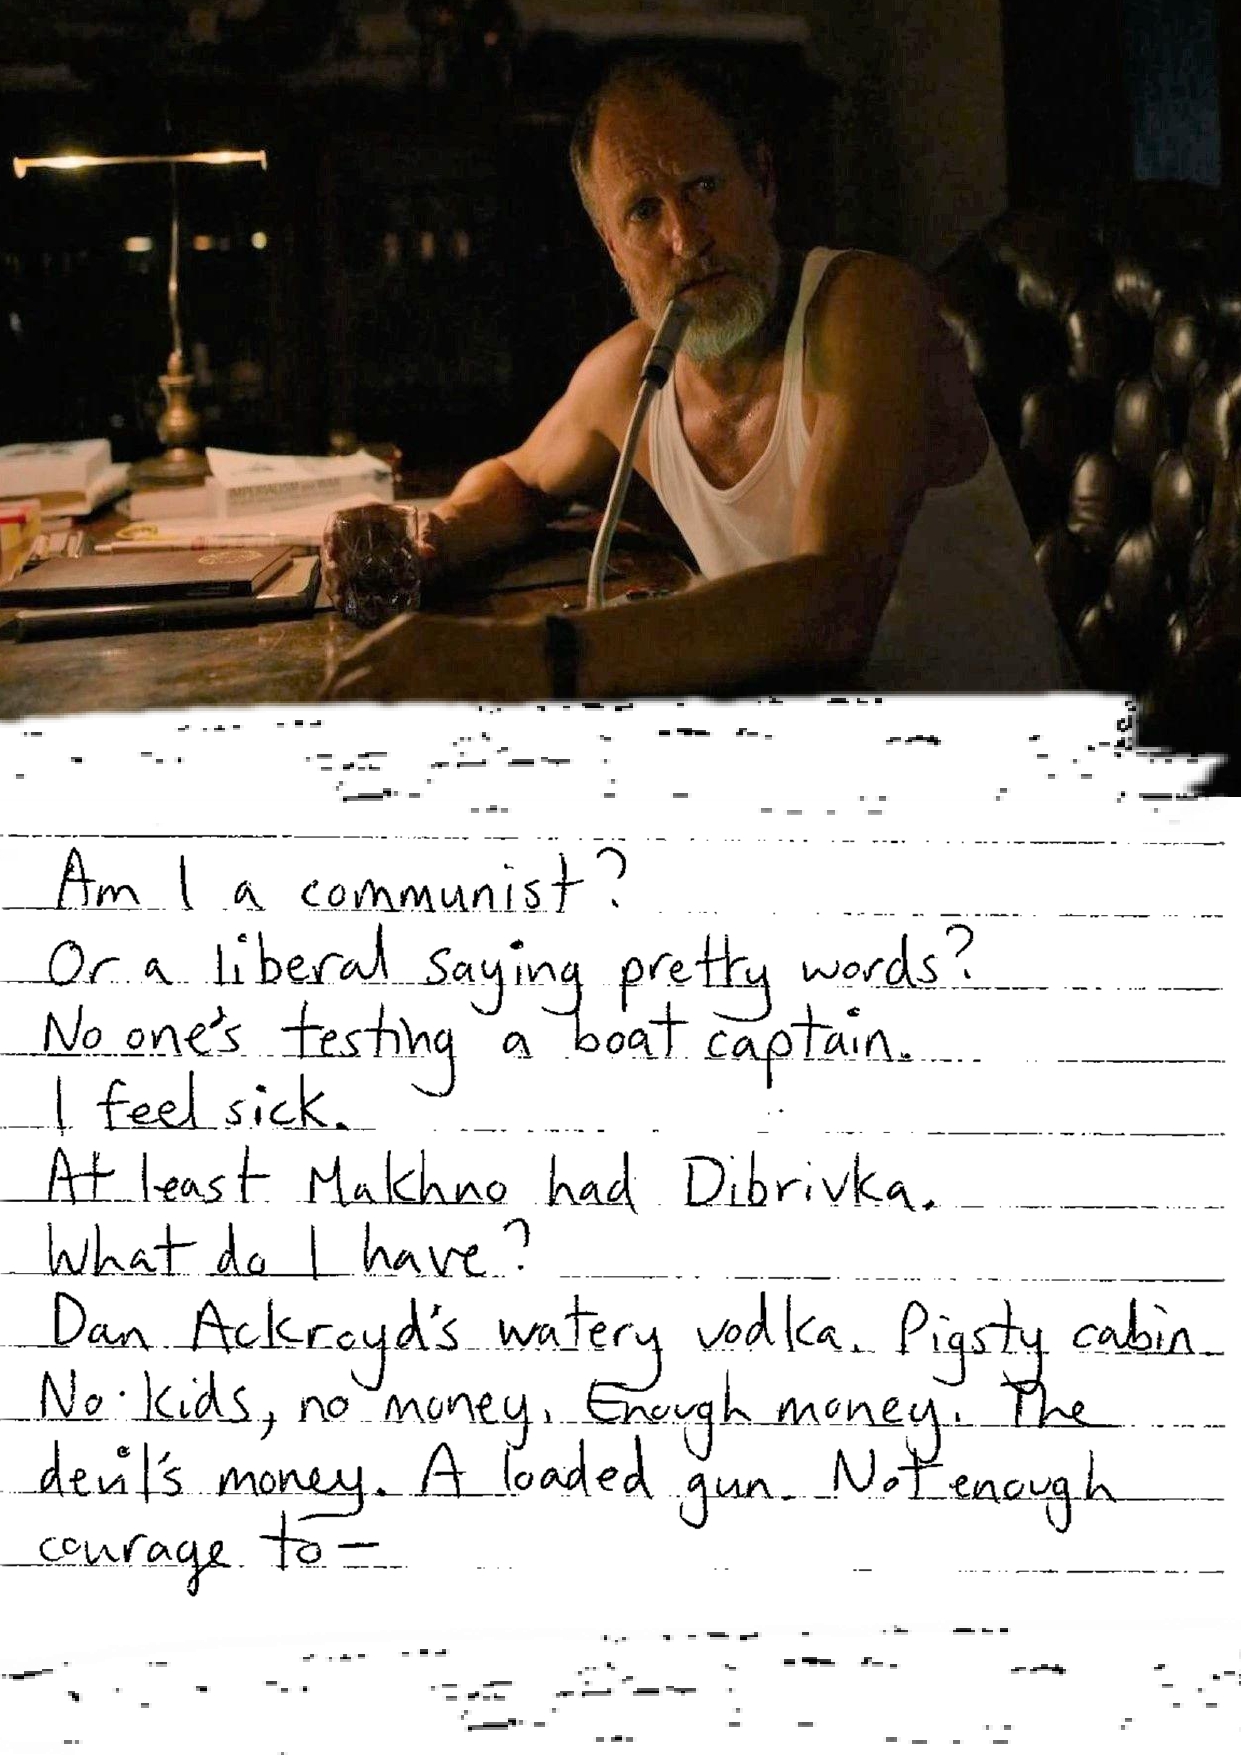 IMPERIALISM AND WAR
Am I a communist?
Or a liberal saying pretty words?
No one's testing a boat captain.
I feel sick.
At least Makhno had Dibrivka.
What do I have?
Dan Ackroyd's watery vodka. Pigsty cabin
No kids, no money. Enough money. The
devil's money. A loaded gun. Not enough
courage to—